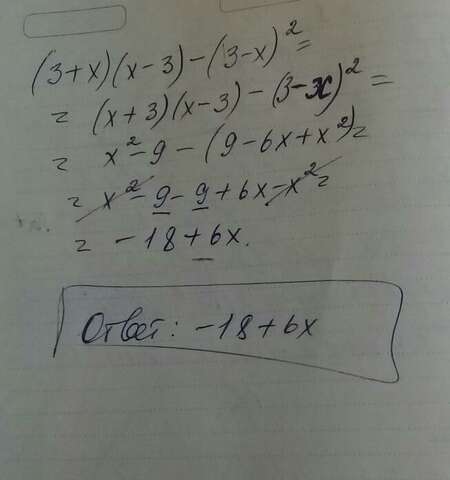 (3+x)(x-3)-(3-x)²=
= (x+3)(x-3)-(3-x)²=
= x²-9-(9-6x+x²)=
= x²-9-9+6x-x²=
= -18+6x.
Ответ: -18+6x